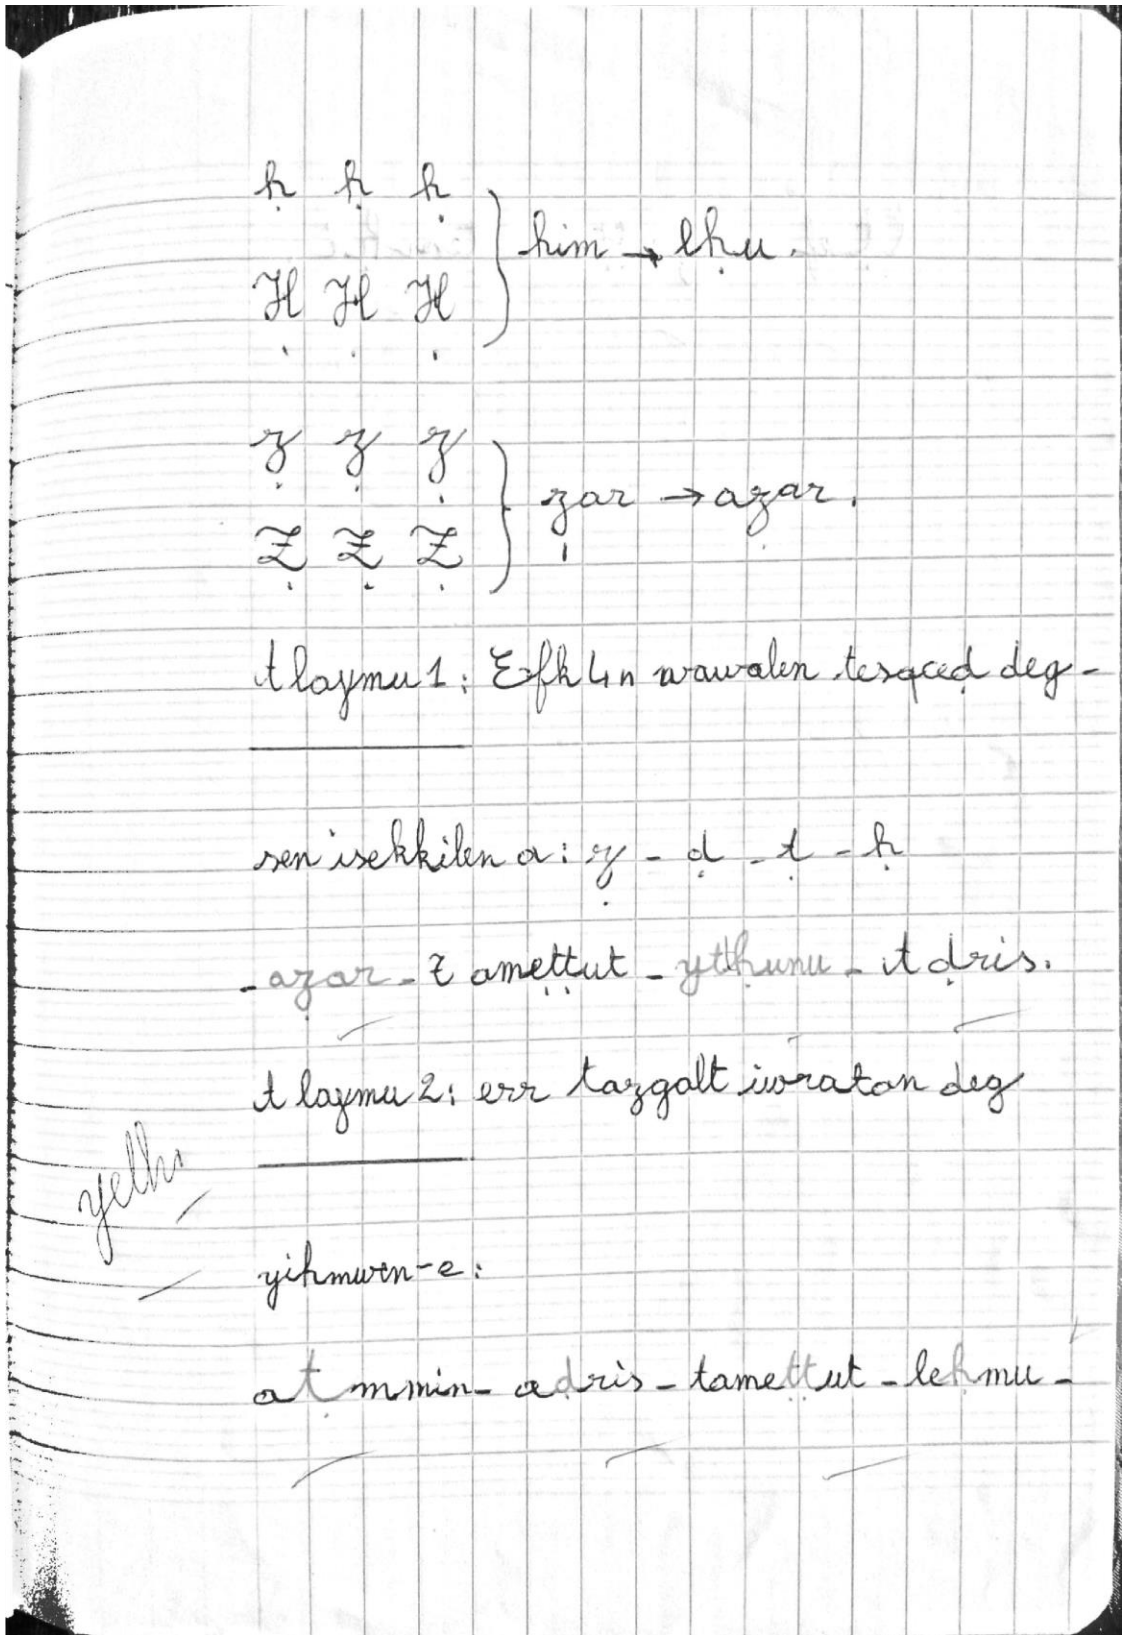 ḥ ḥ ḥ
ḥim → lḥu.
Ḥ Ḥ Ḥ
ẓ ẓ ẓ
ẓar → aẓar.
Ẓ Ẓ Ẓ
tlaymu 1: Efk 4n wawalen tesqeḍ deg-
sen isekkilen a: ẓ - ḍ - ṭ - ḥ
- aẓar - tameṭṭut - - tḍris.
tlaymu 2: err tazgalt iwratan deg
yelhi
yihmwen-e:
aṭmmin - aḍris - tameṭṭut - leḥmu -